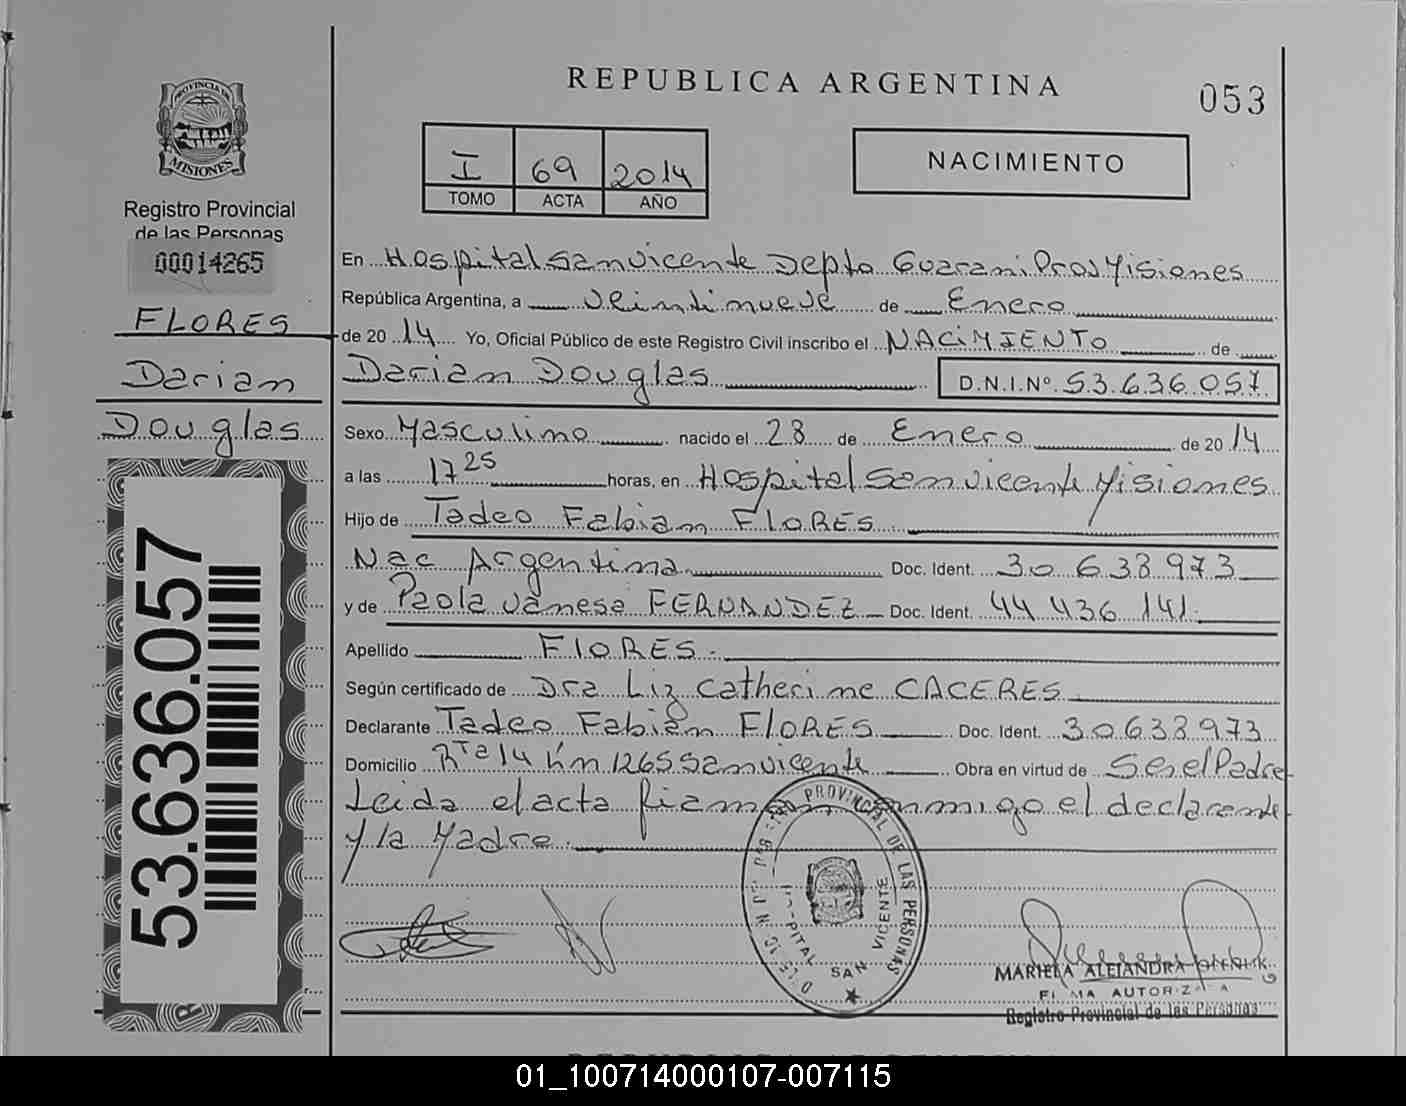 REPUBLICA ARGENTINA
053
PROVINCIA DE
MISIONES
Registro Provincial
de las Personas
00014265
FLORES
Darian
Douglas
53.636.057
I 69 2014
TOMO ACTA AÑO
NACIMIENTO
En Hospital San Vicente Depto Guarani Prov Misiones
República Argentina, a veintinueve de Enero
de 2014 Yo, Oficial Público de este Registro Civil inscribo el NACIMIENTO de
Darian Douglas D.N.I.Nº 53.636.057
Sexo Masculino nacido el 28 de Enero de 2014
a las 17 25 horas, en Hospital San Vicente Misiones
Hijo de Tadeo Fabian FLORES
Nac Argentina Doc. Ident. 30 638 973
y de Paola Vanesa FERNANDEZ Doc. Ident. 44 436 141
Apellido FLORES.
Según certificado de Dra Liz Catherine CACERES
Declarante Tadeo Fabian FLORES Doc. Ident. 30638973
Domicilio Rta 14 km 1265 San Vicente Obra en virtud de Ser el Padre
Leida el acta firman conmigo el declarante
y la Madre.
PROVINCIAL DE LAS PERSONAS
HOSPITAL SAN VICENTE
MARIELA ALEJANDRA
FIRMA AUTORIZADA
Registro Provincial de las Personas
REPUBLICA ARGENTINA
01_100714000107-007115